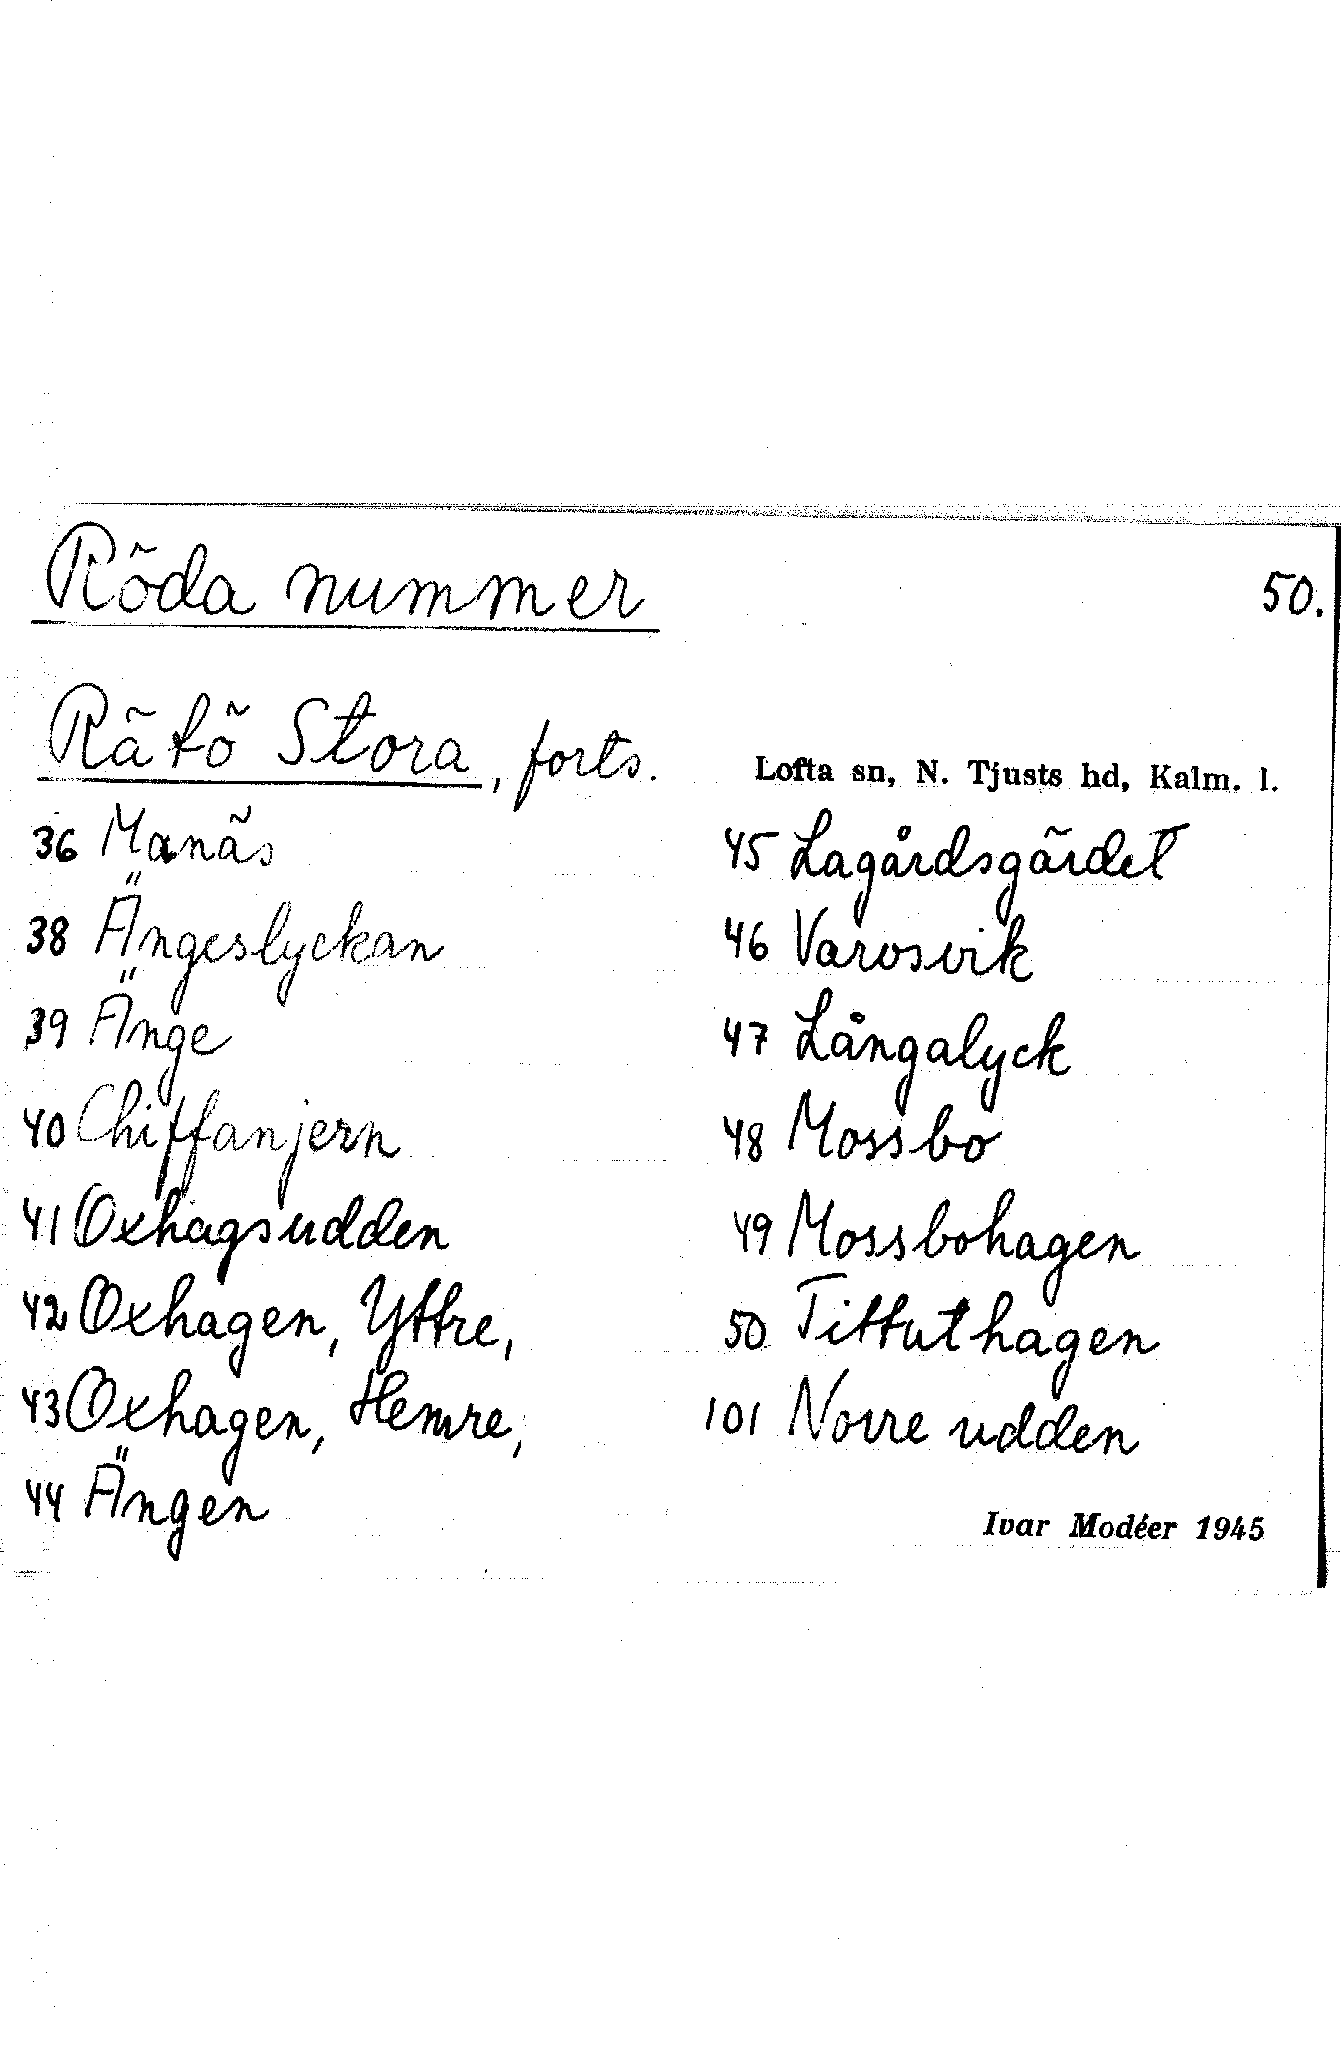 Röda nummer
50.
Rätö Stora, forts.
Lofta sn, N. Tjusts hd, Kalm. l.
36 Manäs
38 Ängeslyckan
39 Änge
40 Chiffanjern
41 Oxhagsudden
42 Oxhagen, Yttre,
43 Oxhagen, Hemre,
44 Ängen
45 Lagårdsgärdet
46 Varosvik
47 Långalyck
48 Mossbo
49 Mossbohagen
50 Tittuthagen
101 Norre udden
Ivar Modéer 1945